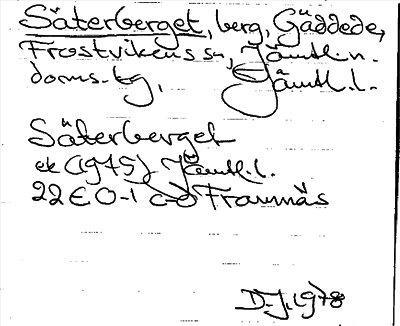 Säterberget, berg, Gäddede,
Frostvikens sn, Jämtl. n.
doms. tg, Jämtl. l.
Säterberget
ek (1975) Jämtl. l.
22 E 0-1 c-d Framnäs
D-J. 1978